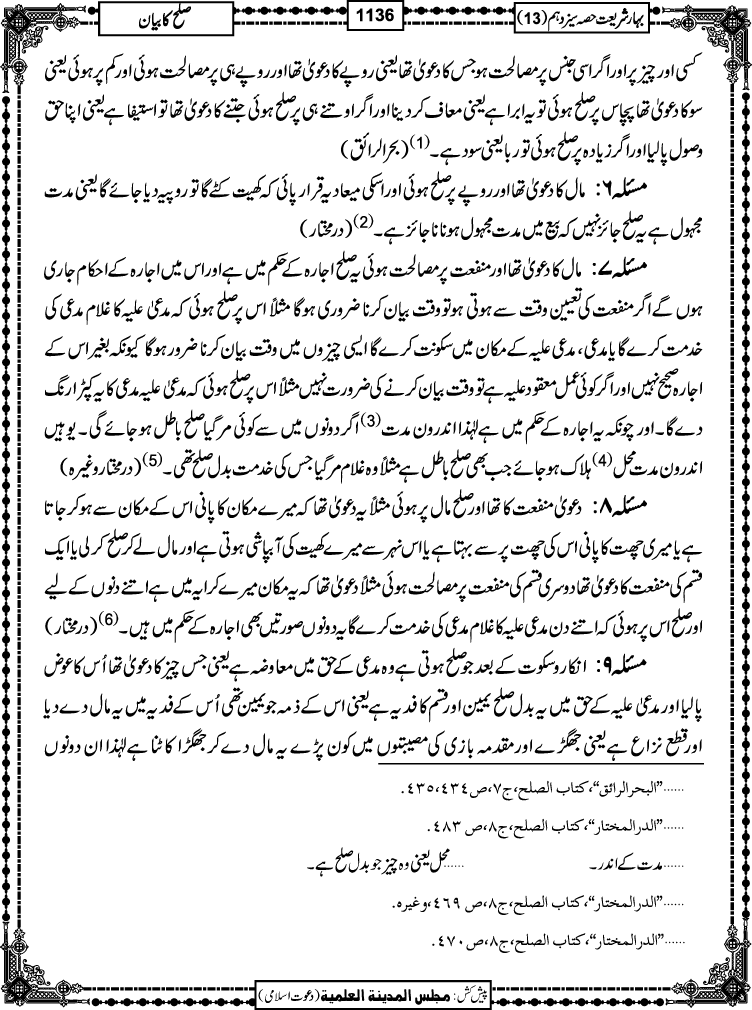 بہارِشریعت حصہ سیزدہم (13)
1136
صلح کا بیان
کسی اور چیز پر اور اگر اسی جنس پر مصالحت ہو جس کا دعویٰ تھا یعنی روپے کا دعویٰ تھا اور روپے ہی پر مصالحت ہوئی اور کم پر ہوئی یعنی
سو کا دعویٰ تھا پچاس پر صلح ہوئی تو یہ ابرا ہے یعنی معاف کر دینا اور اگر اوتنے ہی پر صلح ہوئی جتنے کا دعویٰ تھا تو استیفا ہے یعنی اپنا حق
وصول پالیا اور اگر زیادہ پر صلح ہوئی تو ربا یعنی سود ہے۔ (1) (بحرالرائق)
مسئلہ ۶: مال کا دعویٰ تھا اور روپے پر صلح ہوئی اور اسکی میعاد یہ قرار پائی کہ کھیت کٹے گا تو روپیہ دیا جائے گا یعنی مدت
مجہول ہے یہ صلح جائز نہیں کہ بیع میں مدت مجہول ہونا ناجائز ہے۔ (2) (درمختار)
مسئلہ ۷: مال کا دعویٰ تھا اور منفعت پر مصالحت ہوئی یہ صلح اجارہ کے حکم میں ہے اور اس میں اجارہ کے احکام جاری
ہوں گے اگر منفعت کی تعیین وقت سے ہوتی ہو تو وقت بیان کرنا ضروری ہوگا مثلاً اس پر صلح ہوئی کہ مدعیٰ علیہ کا غلام مدعی کی
خدمت کرے گا یا مدعی، مدعی علیہ کے مکان میں سکونت کرے گا ایسی چیزوں میں وقت بیان کرنا ضرور ہوگا کیونکہ بغیر اس کے
اجارہ صحیح نہیں اور اگر کوئی عمل معقود علیہ ہے تو وقت بیان کرنے کی ضرورت نہیں مثلاً اس پر صلح ہوئی کہ مدعیٰ علیہ مدعی کا یہ کپڑا رنگ
دے گا۔ اور چونکہ یہ اجارہ کے حکم میں ہے لہٰذا اندرون مدت (3) اگر دونوں میں سے کوئی مر گیا صلح باطل ہو جائے گی۔ یوہیں
اندرون مدت محل (4) ہلاک ہو جائے جب بھی صلح باطل ہے مثلاً وہ غلام مر گیا جس کی خدمت بدل صلح تھی۔ (5) (درمختار وغیرہ)
مسئلہ ۸: دعویٰ منفعت کا تھا اور صلح مال پر ہوئی مثلاً یہ دعویٰ تھا کہ میرے مکان کا پانی اس کے مکان سے ہو کر جاتا
ہے یا میری چھت کا پانی اس کی چھت پر سے بہتا ہے یا اس نہر سے میرے کھیت کی آبپاشی ہوتی ہے اور مال لے کر صلح کر لی یا ایک
قسم کی منفعت کا دعویٰ تھا دوسری قسم کی منفعت پر مصالحت ہوئی مثلاً دعویٰ تھا کہ یہ مکان میرے کرایہ میں ہے اتنے دنوں کے لیے
اور صلح اس پر ہوئی کہ اتنے دن مدعی علیہ کا غلام مدعی کی خدمت کرے گا یہ دونوں صورتیں بھی اجارہ کے حکم میں ہیں۔ (6) (درمختار)
مسئلہ ۹: انکار و سکوت کے بعد جو صلح ہوتی ہے وہ مدعی کے حق میں معاوضہ ہے یعنی جس چیز کا دعویٰ تھا اُس کا عوض
پالیا اور مدعیٰ علیہ کے حق میں یہ بدل صلح یمین اور قسم کا فدیہ ہے یعنی اس کے ذمہ جو یمین تھی اُس کے فدیہ میں یہ مال دے دیا
اور قطع نزاع ہے یعنی جھگڑے اور مقدمہ بازی کی مصیبتوں میں کون پڑے یہ مال دے کر جھگڑا کاٹنا ہے لہٰذا ان دونوں
......”البحرالرائق“، کتاب الصلح، ج٧، ص ٤٣٤، ٤٣٥.
......”الدرالمختار“، کتاب الصلح، ج٨، ص ٤٨٣.
......مدت کے اندر۔ ......محل یعنی وہ چیز جو بدل صلح ہے۔
......”الدرالمختار“، کتاب الصلح، ج٨، ص ٤٦٩، وغیرہ.
......”الدرالمختار“، کتاب الصلح، ج٨، ص ٤٧٠.
پیش کش: مجلس المدینة العلمیة (دعوت اسلامی)